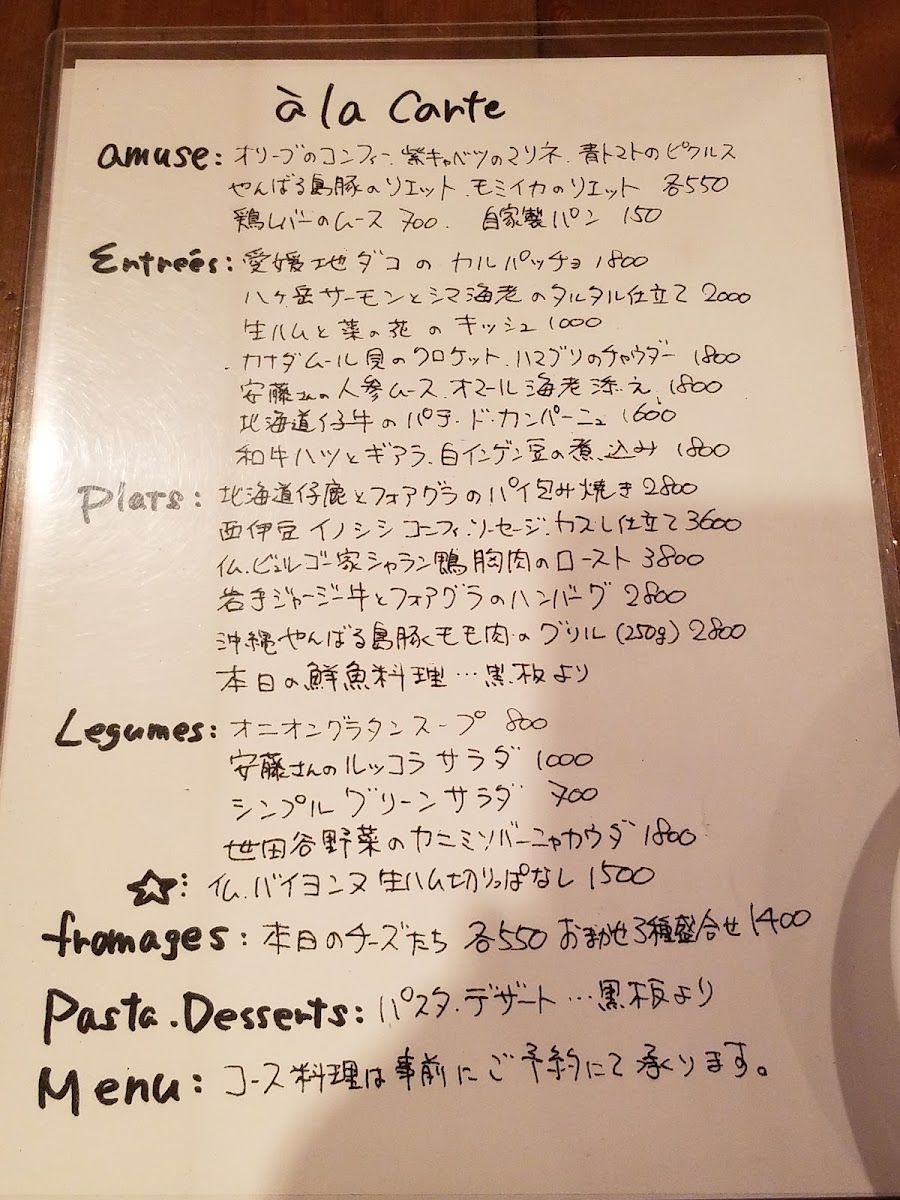 à la Carte
amuse: オリーブのコンフィ、紫キャベツのマリネ、青トマトのピクルス
やんばる島豚のリエット、モミイカのリエット 各550
鶏レバーのムース 700. 自家製パン 150
Entreés: 愛媛地ダコのカルパッチョ 1800
八ヶ岳サーモンとシマ海老のタルタル仕立て 2000
生ハムと菜の花のキッシュ 1000
カナダムール貝のクロケット、ハマグリのチャウダー 1800
安藤さんの人参ムース、オマール海老添え 1800
北海道仔牛のパテ・ド・カンパーニュ 1600
和牛ハツとギアラ、白インゲン豆の煮込み 1800
Plats: 北海道仔鹿とフォアグラのパイ包み焼き 2800
西伊豆イノシシコンフィ、ソーセージ、カスレ仕立て 3600
仏、ビュルゴー家シャラン鴨胸肉のロースト 3800
岩手ジャージー牛とフォアグラのハンバーグ 2800
沖縄やんばる島豚モモ肉のグリル (250g) 2800
本日の鮮魚料理…黒板より
Legumes: オニオングラタンスープ 800
安藤さんのルッコラサラダ 1000
シンプルグリーンサラダ 700
世田谷野菜のカニミソバーニャカウダ 1800
☆: 仏、バイヨンヌ生ハム切りっぱなし 1500
fromages: 本日のチーズたち 各550 おまかせ3種盛合せ 1400
Pasta.Desserts: パスタ・デザート…黒板より
Menu: コース料理は事前にご予約にて承ります。